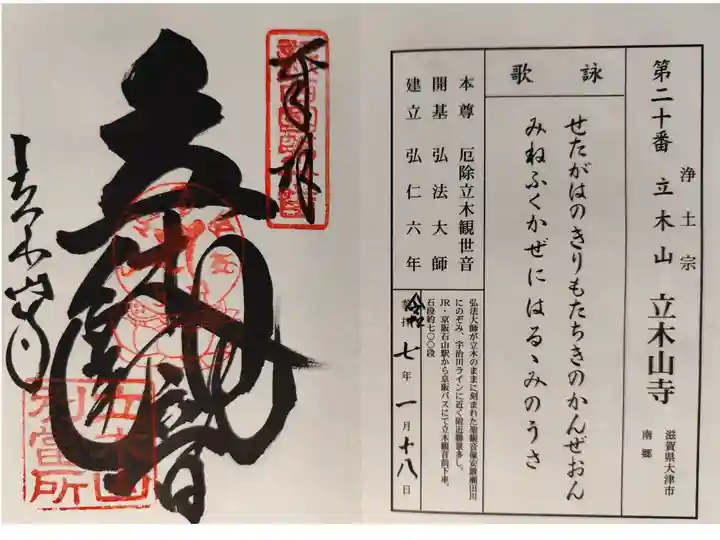 第二十番 立木山 立木山寺
浄土宗
滋賀県大津市
南郷
詠歌
せたがはのきりもたちきのかんぜおん
みねふくかぜにはるゝみのうさ
本尊 厄除立木観世音
開基 弘法大師
建立 弘仁六年
弘法大師が立木のままに刻まれた聖観音像安置瀬田川
にのぞみ、宇治川ラインに近く附近勝景多し。
JR・京阪石山駅から京阪バスにて立木観音前下車。
石段約七〇〇段
令和 七年 一月 十八日
奉拝
立木観音
立木山寺
立木山
別當所